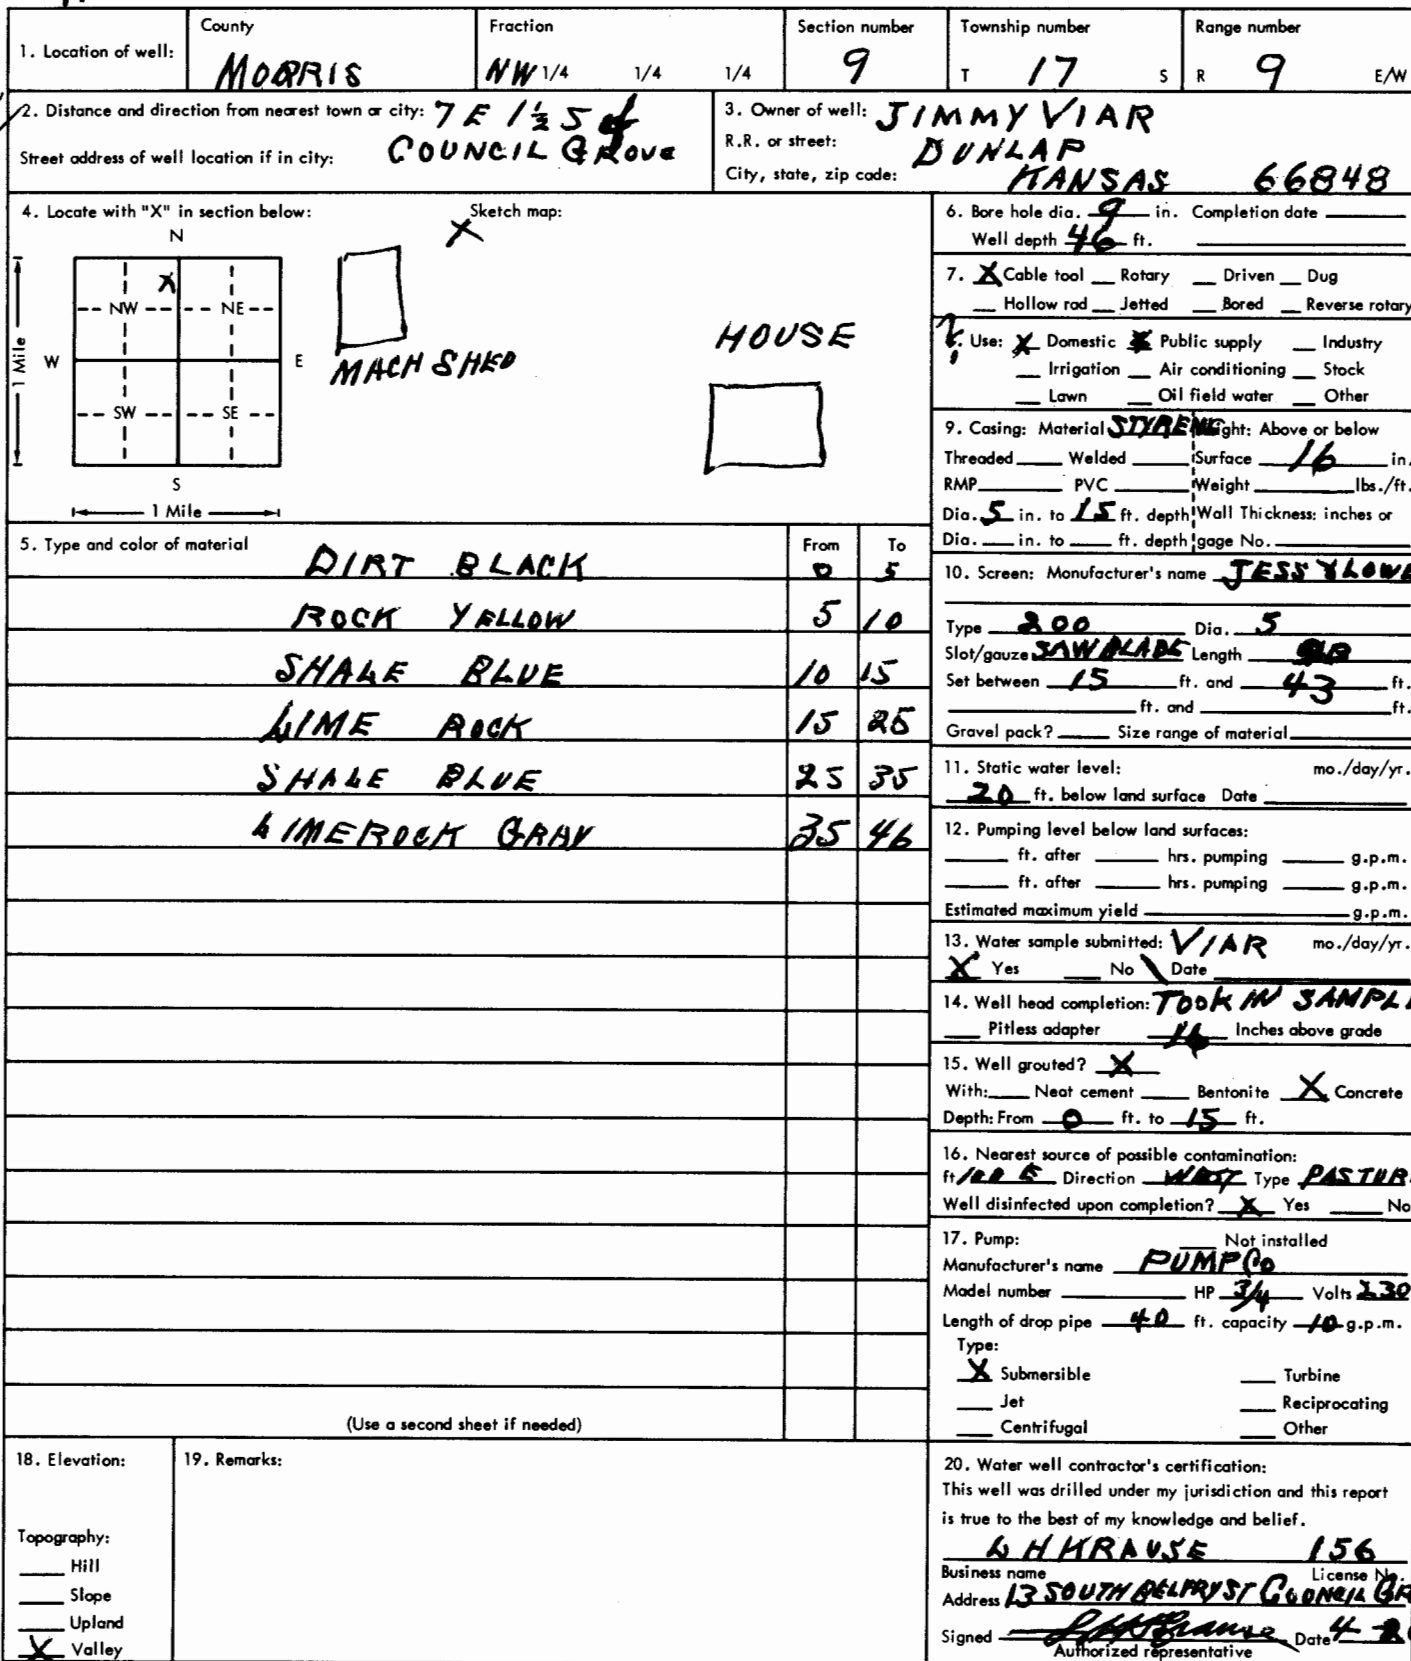 County Fraction Section number Township number Range number
1. Location of well: MORRIS NW 1/4 1/4 1/4 9 T 17 S R 9 E/W
2. Distance and direction from nearest town or city: 7 E 1½ S of
Street address of well location if in city: COUNCIL GROVE
3. Owner of well: JIMMY VIAR
R.R. or street: DUNLAP
City, state, zip code: KANSAS 66848
4. Locate with "X" in section below: Sketch map:
N
X
X
NW NE
W E
1 Mile
SW SE
S
1 Mile
MACH SHED
HOUSE
5. Type and color of material From To
DIRT BLACK 0 5
ROCK YELLOW 5 10
SHALE BLUE 10 15
LIME ROCK 15 25
SHALE BLUE 25 35
LIMEROCK GRAY 35 46
(Use a second sheet if needed)
6. Bore hole dia. 9 in. Completion date
Well depth 46 ft.
7. X Cable tool Rotary Driven Dug
Hollow rod Jetted Bored Reverse rotary
Use: X Domestic X Public supply Industry
Irrigation Air conditioning Stock
Lawn Oil field water Other
9. Casing: Material STYRENE Height: Above or below
Threaded Welded Surface 16 in.
RMP PVC Weight lbs./ft.
Dia. 5 in. to 15 ft. depth Wall Thickness: inches or
Dia. in. to ft. depth gage No.
10. Screen: Manufacturer's name JESS & LOWE
Type 200 Dia. 5
Slot/gauze SAW BLADE Length
Set between 15 ft. and 43 ft.
ft. and ft.
Gravel pack? Size range of material
11. Static water level: mo./day/yr.
20 ft. below land surface Date
12. Pumping level below land surfaces:
ft. after hrs. pumping g.p.m.
ft. after hrs. pumping g.p.m.
Estimated maximum yield g.p.m.
13. Water sample submitted: VIAR mo./day/yr.
X Yes No Date
14. Well head completion: TOOK IN SAMPLE
Pitless adapter 16 Inches above grade
15. Well grouted? X
With: Neat cement Bentonite X Concrete
Depth: From 0 ft. to 15 ft.
16. Nearest source of possible contamination:
ft. Direction WEST Type PASTURE
Well disinfected upon completion? X Yes No
17. Pump: Not installed
Manufacturer's name PUMP CO
Model number HP 3/4 Volts 230
Length of drop pipe 40 ft. capacity 10 g.p.m.
Type:
X Submersible Turbine
Jet Reciprocating
Centrifugal Other
18. Elevation: 19. Remarks:
Topography:
Hill
Slope
Upland
X Valley
20. Water well contractor's certification:
This well was drilled under my jurisdiction and this report
is true to the best of my knowledge and belief.
L H KRAUSE 156
Business name License No.
Address 13 SOUTH BELFRY ST COUNCIL GR
Signed L H Krause Date 4
Authorized representative